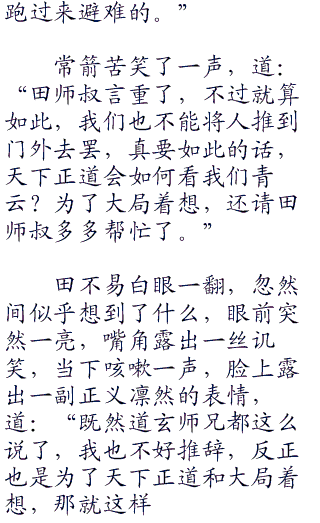 跑过来避难的。”
常箭苦笑了一声，道：
“田师叔言重了，不过就算
如此，我们也不能将人推到
门外去罢，真要如此的话，
天下正道会如何看我们青
云？为了大局着想，还请田
师叔多多帮忙了。”
田不易白眼一翻，忽然
间似乎想到了什么，眼前突
然一亮，嘴角露出一丝讥
笑，当下咳嗽一声，脸上露
出一副正义凛然的表情，
道：“既然道玄师兄都这么
说了，我也不好推辞，反正
也是为了天下正道和大局着
想，那就这样